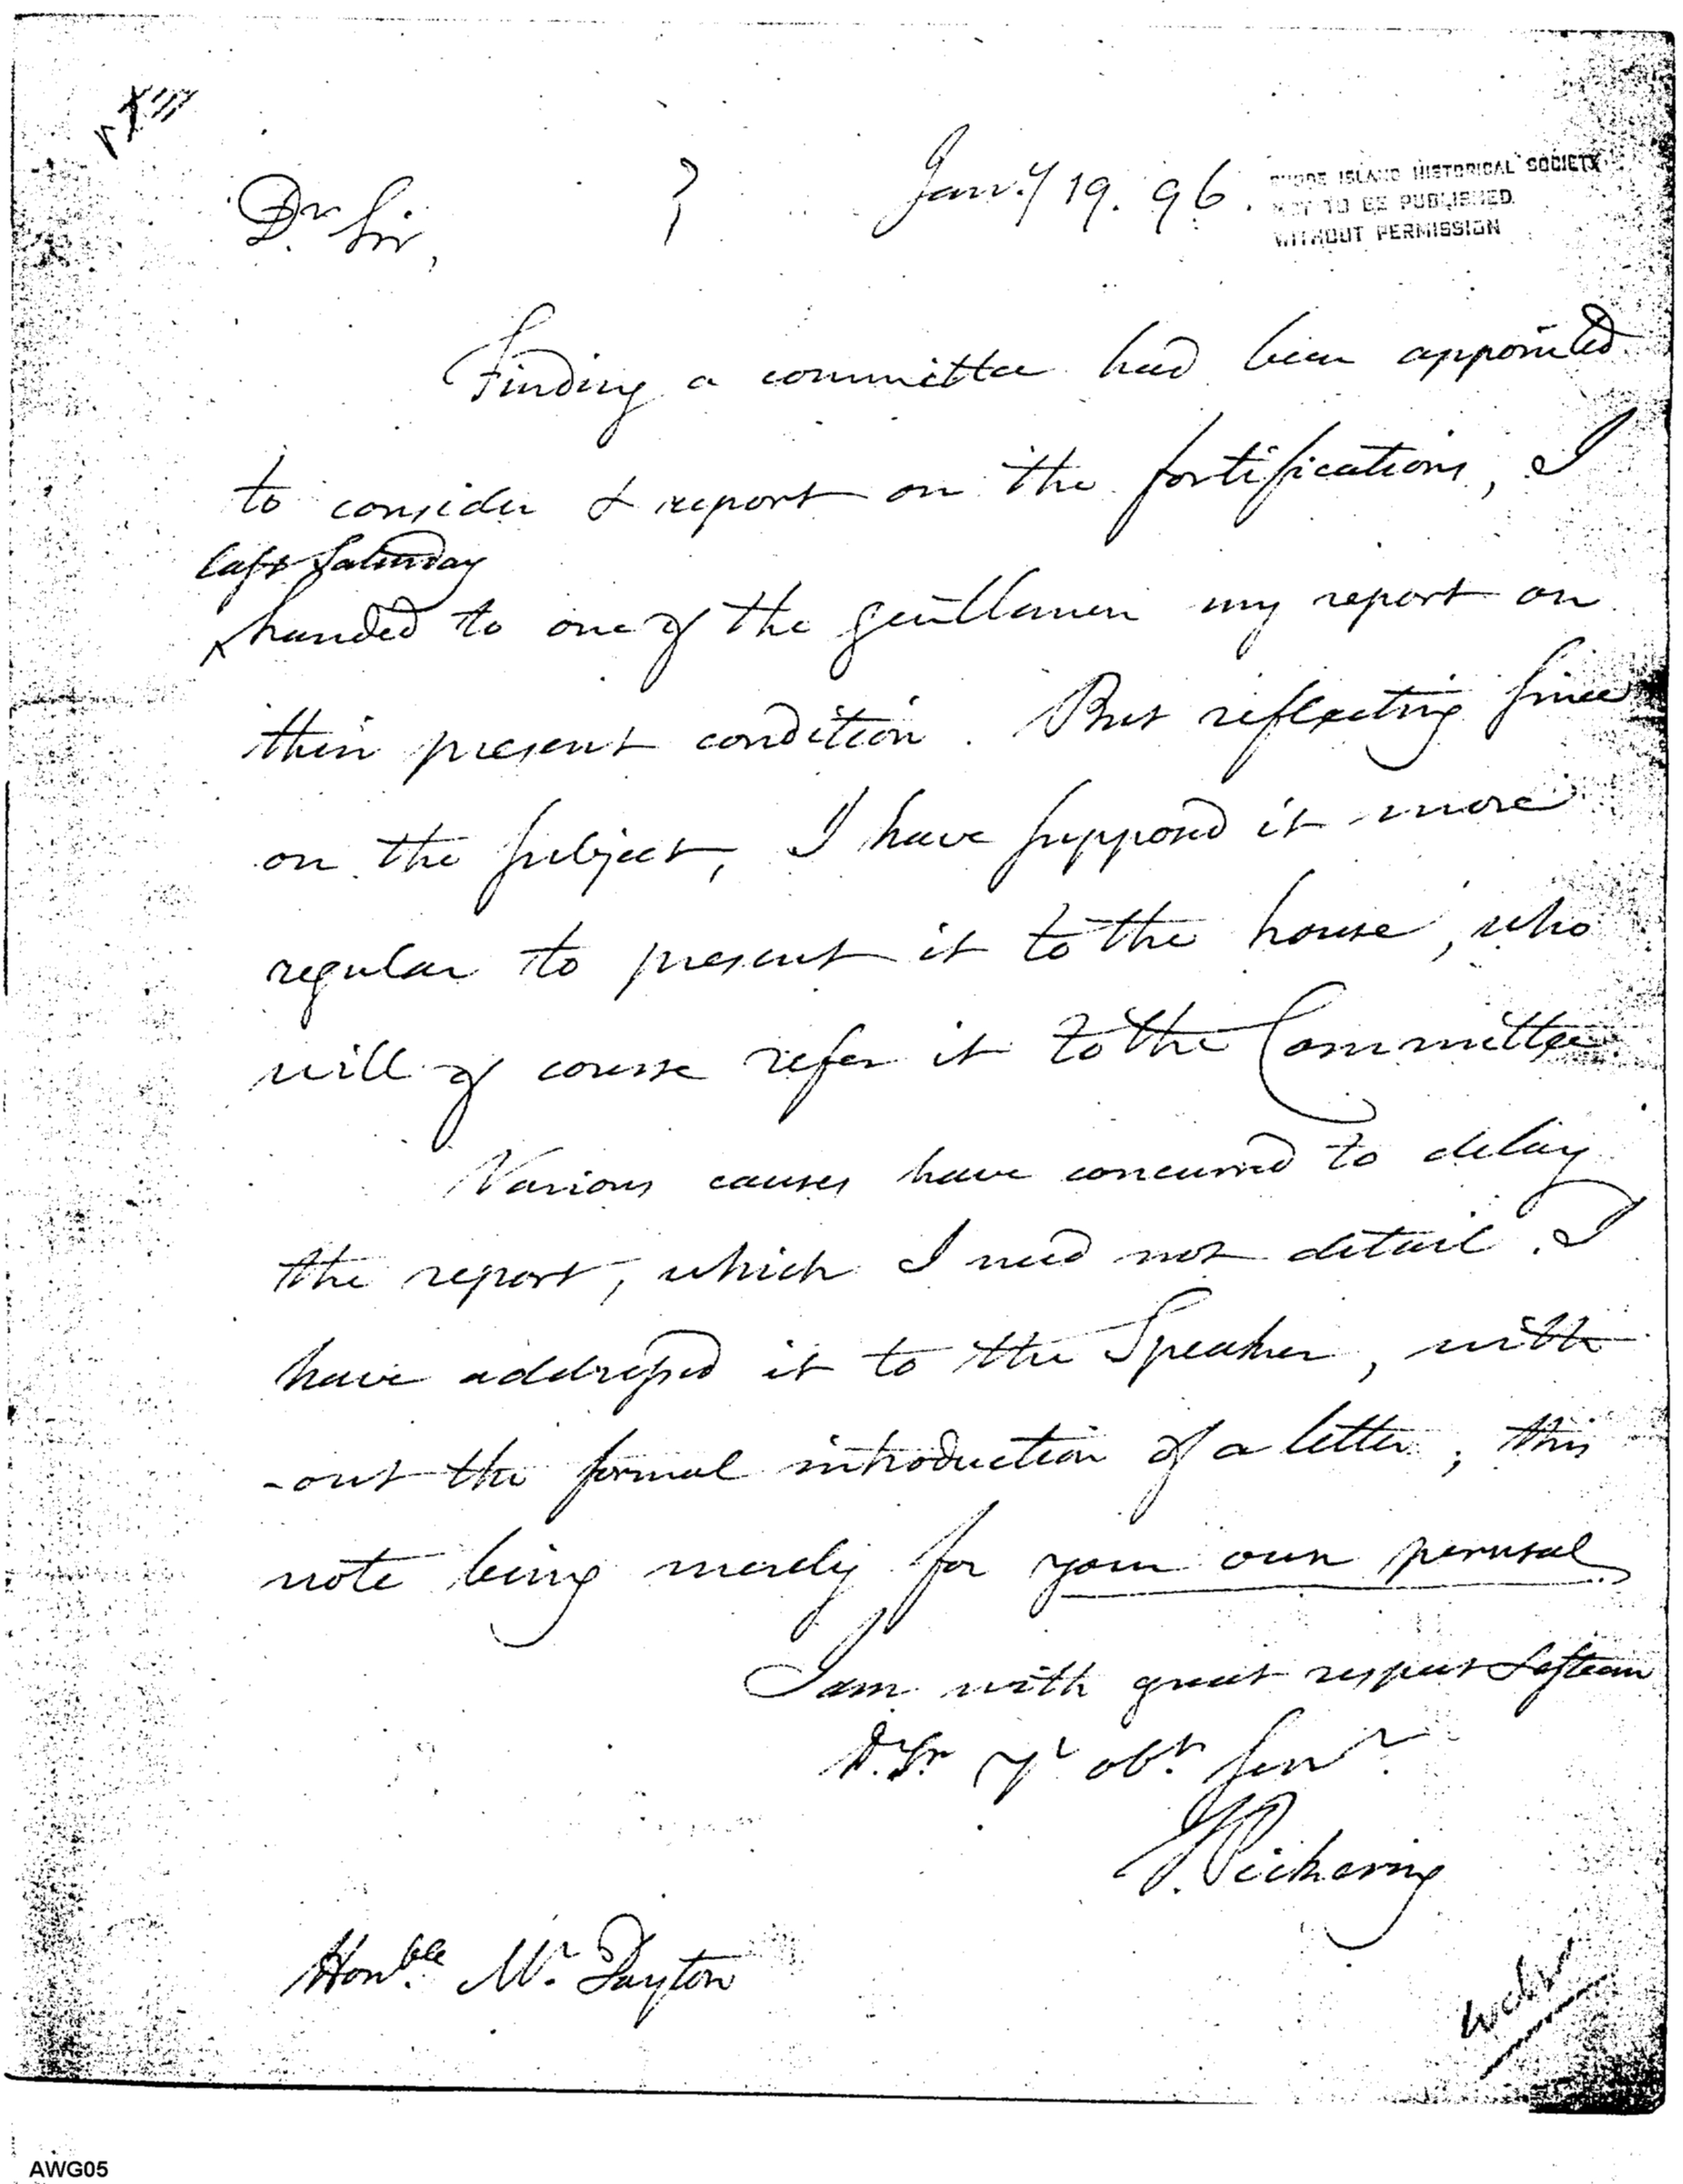 Jany 19. 96.
RHODE ISLAND HISTORICAL SOCIETY
NOT TO BE PUBLISHED
WITHOUT PERMISSION
Dr Sir,
?
Finding a committee had been appointed
to consider & report on the fortifications, I
last Saturday
handed to one of the gentlemen my report on
their present condition. But reflecting since
on the subject, I have supposd it more
regular to present it to the house, who
will of course refer it to the Committee
Various causes have concurred to delay
the report, which I need not detail. I
have addressed it to the Speaker, with
-out the formal introduction of a letter; this
note being merely for your own perusal
I am with great respect & esteem
D. Sr yr obt. servt.
T. Pickering
Honble. Mr. Dayton
AWG05